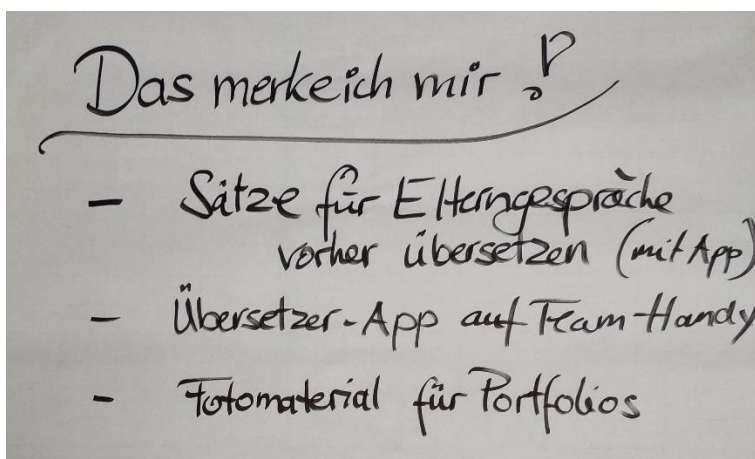 Das merke ich mir !
- Sätze für Elterngespräche
vorher übersetzen (mit App)
- Übersetzer-App auf Team-Handy
- Fotomaterial für Portfolios